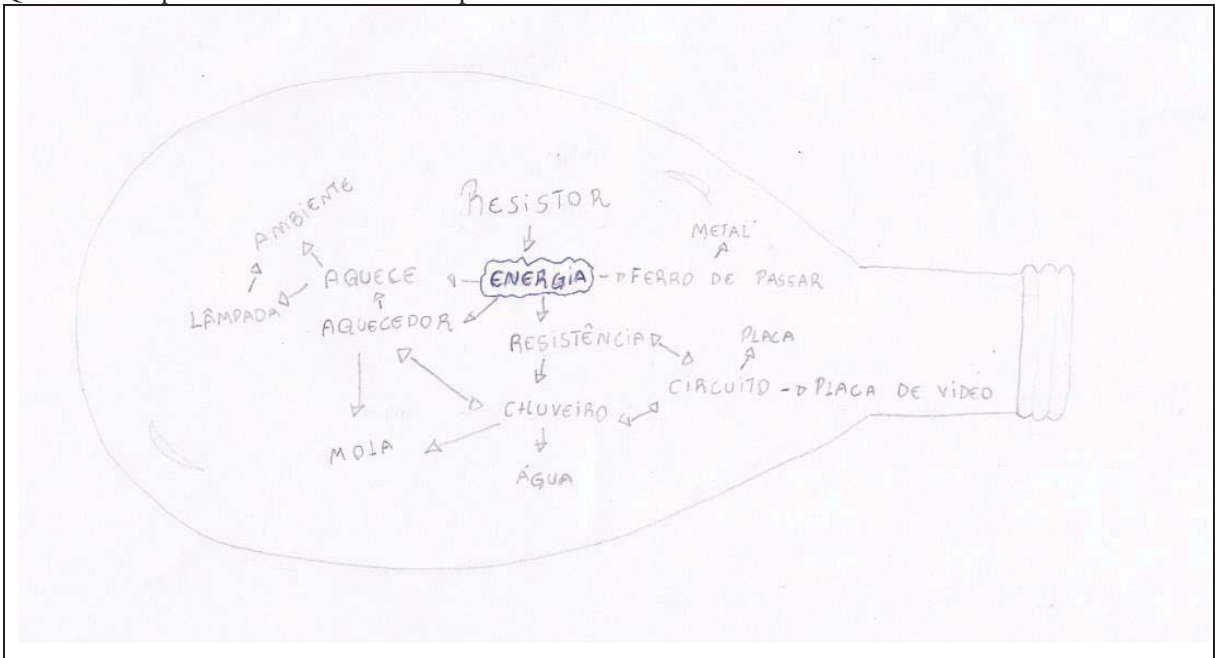 RESISTOR
METAL
AMBIENTE
AQUECE
ENERGIA
FERRO DE PASSAR
LÂMPADA
AQUECEDOR
RESISTÊNCIA
PLACA
CIRCUITO
PLACA DE VÍDEO
CHUVEIRO
MOLA
ÁGUA